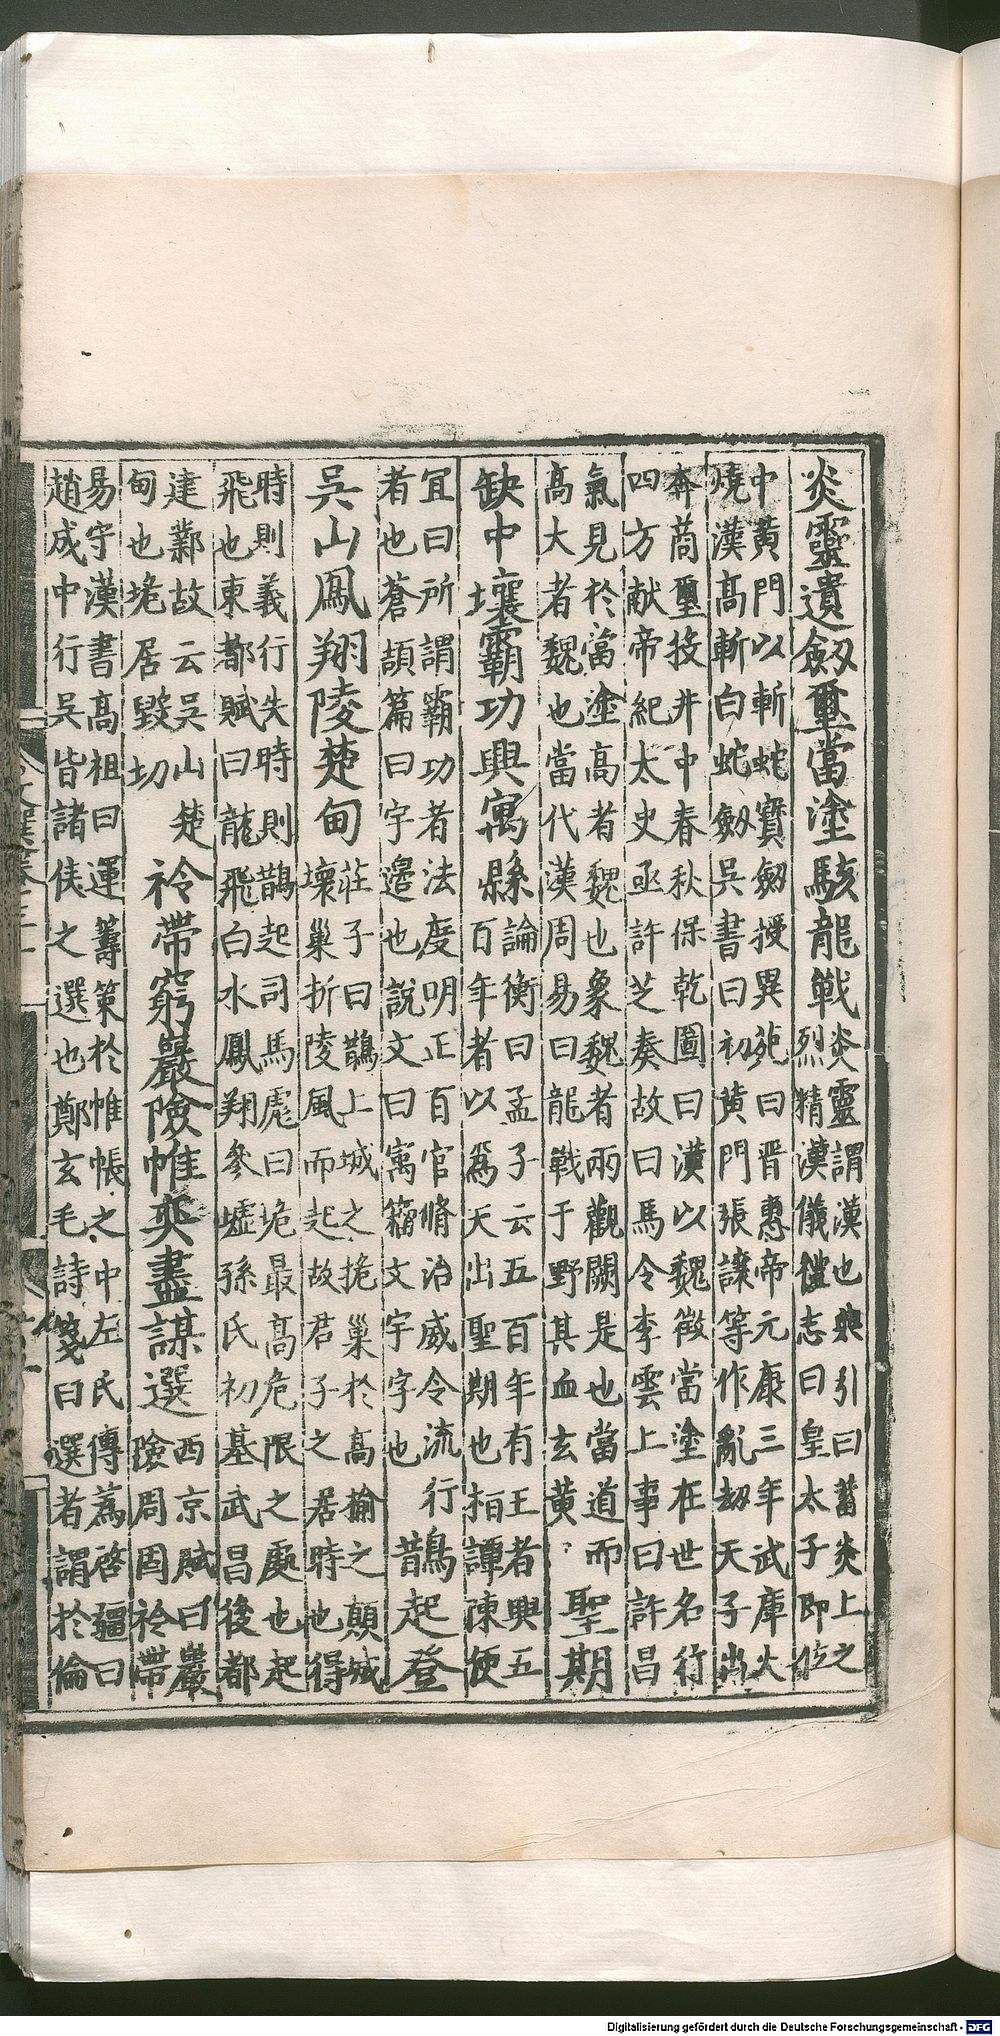 炎靈遺劔璽當塗駭龍戰
炎靈謂漢也典引曰蓄炎上之
烈精漢儀禮志曰皇太子即位
中黄門以斬蛇寳劔授異苑曰晋惠帝元康三年武庫火
燒漢高斬白蛇劔吳書曰初黄門張讓等作亂劫天子出
奔蒭璽投井中春秋保乾圖曰漢以魏徵當塗在世名行
四方献帝紀太史丞許芝奏故曰馬令李雲上事曰許昌
氣見於當塗高者魏也象魏者兩觀闕是也當道而
高大者魏也當代漢周易曰龍戰于野其血玄黄
聖期
缺中壤霸功興寓縣
論衡曰孟子云五百年有王者興五
百年者以爲天出聖期也栢譚陳便
宜曰所謂霸功者法度明正百官脩治威令流行
者也蒼頡篇曰宇邉也說文曰寓籀文宇字也
鵲起登
吳山鳳翔陵楚甸
莊子曰鵲上城之垝巢於高榆之顛城
壞巢折陵風而起故君子之居時也得
時則義行失時則鵲起司馬彪曰垝最高危限之處也起
飛也東都賦曰龍飛白水鳳翔參墟孫氏初基武昌後都
建鄴故云吳山楚
甸也垝居毀切
衿帶窮巖險帷奕盡謀選
西京賦曰巖
險周固衿帶
易守漢書高祖曰運籌策於帷帳之中左氏傳爲啓疆曰
趙成中行吳皆諸侯之選也鄭玄毛詩箋曰選者謂於倫
Digitalisierung gefördert durch die Deutsche Forschungsgemeinschaft - DFG